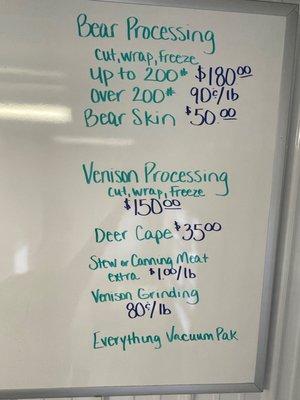 Bear Processing
cut, wrap, freeze
up to 200# $180.00
over 200# 90¢/lb
Bear Skin $50.00
Venison Processing
cut, wrap, freeze
$150.00
Deer Cape $35.00
Stew or Canning Meat
extra $1.00/lb
Venison Grinding
80¢/lb
Everything Vacuum Pak